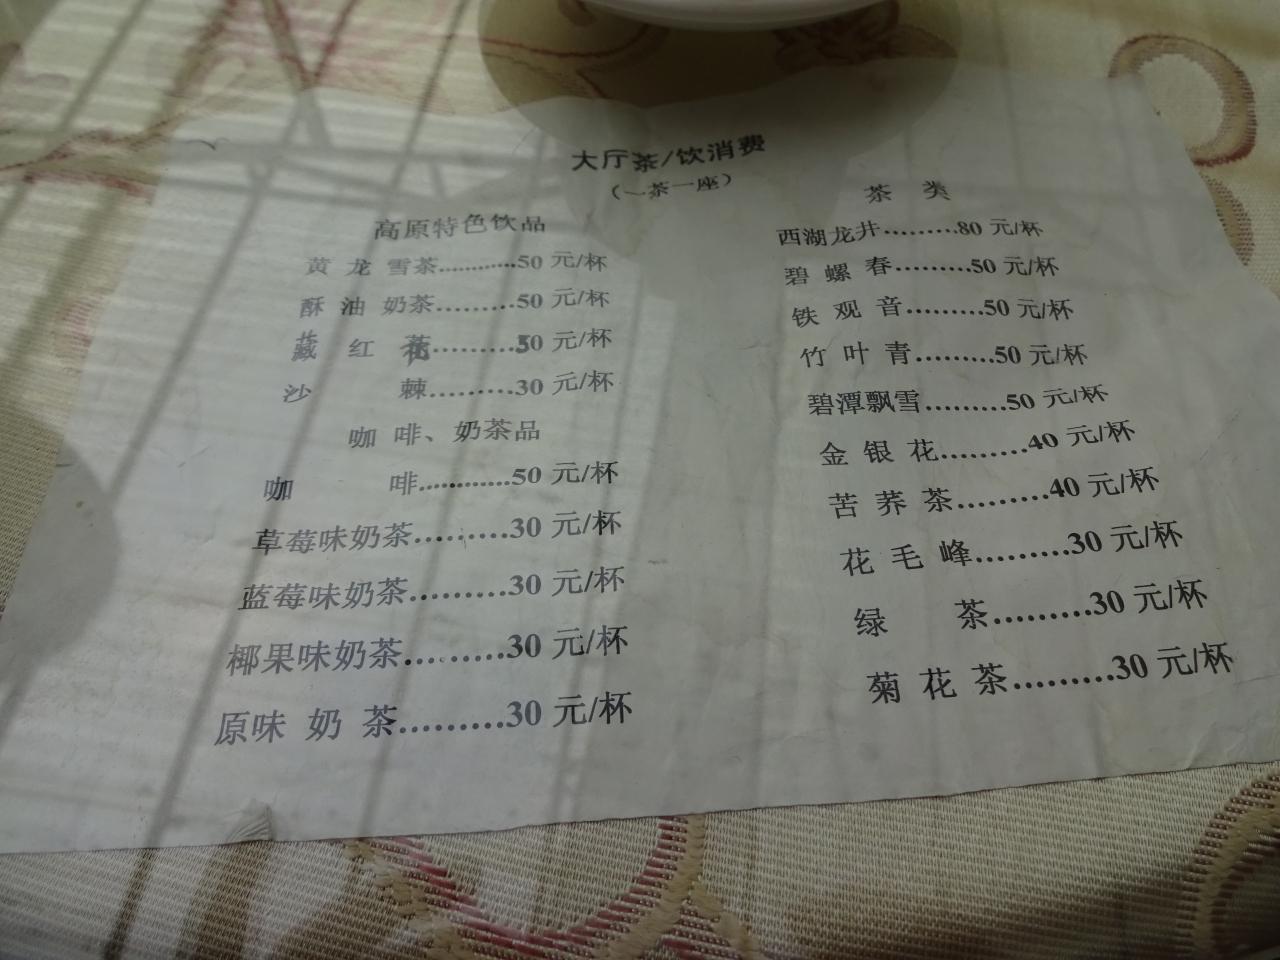 大厅茶/饮消费
（一茶一座）
高原特色饮品
黄 龙 雪茶............50 元/杯
酥 油 奶茶.........50 元/杯
藏 红 花.........50 元/杯
沙 棘.........30 元/杯
咖 啡、奶茶品
咖 啡............50 元/杯
草莓味奶茶.........30 元/杯
蓝莓味奶茶.........30 元/杯
椰果味奶茶.........30 元/杯
原味 奶 茶.........30 元/杯
茶 类
西湖龙井.........80 元/杯
碧 螺 春.........50 元/杯
铁 观 音.........50 元/杯
竹 叶 青.........50 元/杯
碧潭飘雪.........50 元/杯
金 银 花.........40 元/杯
苦 荞 茶.........40 元/杯
花 毛 峰.........30 元/杯
绿 茶.........30 元/杯
菊 花 茶.........30 元/杯